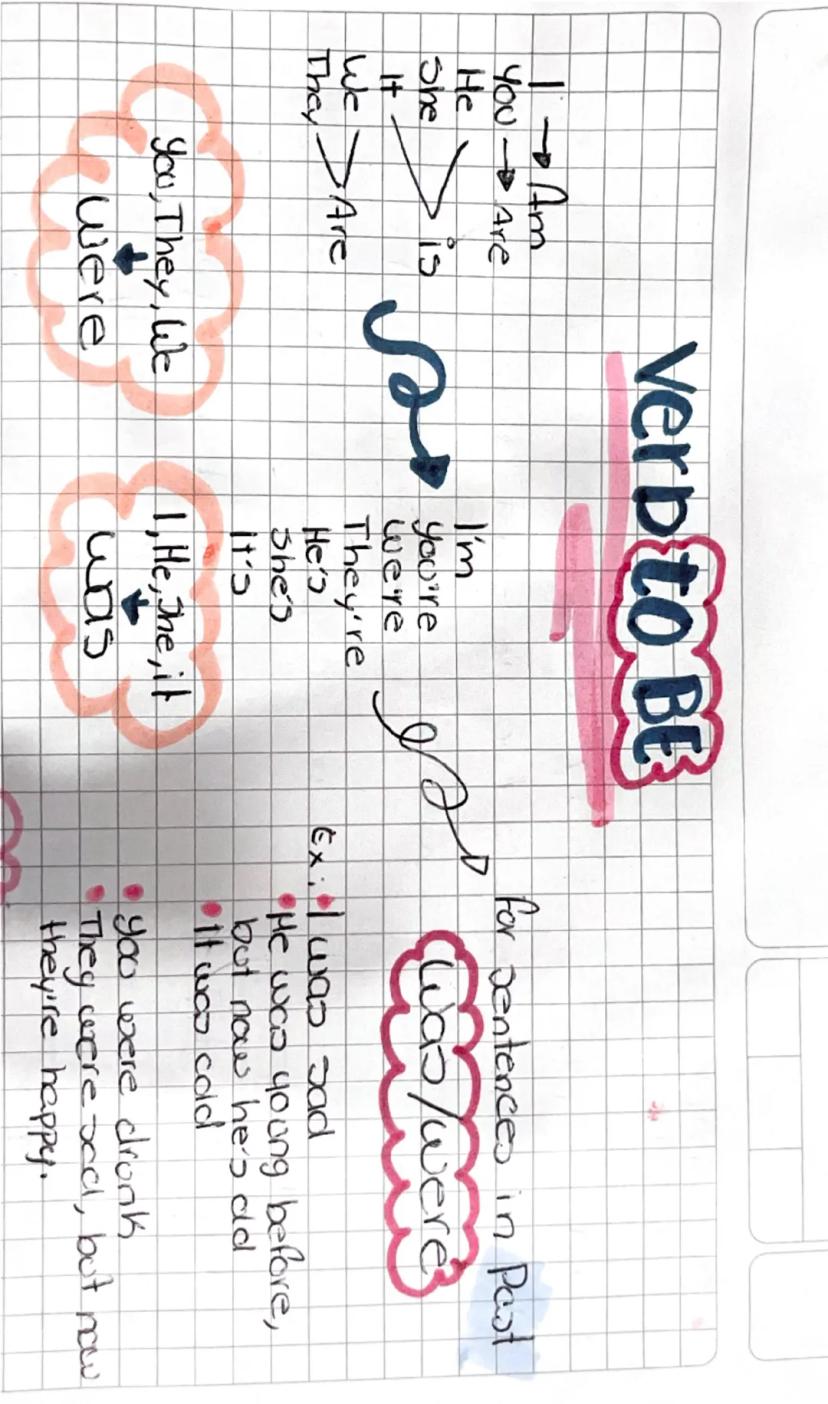 Verb TO BE
I → Am
You → Are
He
She
It
is
We
They
Are
I'm
you're
we're
They're
He's
she's
it's
for sentences in Past
was/were
Ex: • I was sad
• He was young before,
but now he's old
• It was cold
• you were drunk
• They were sad, but now
they're happy.
you, They, We
were
I, He, She, it
was